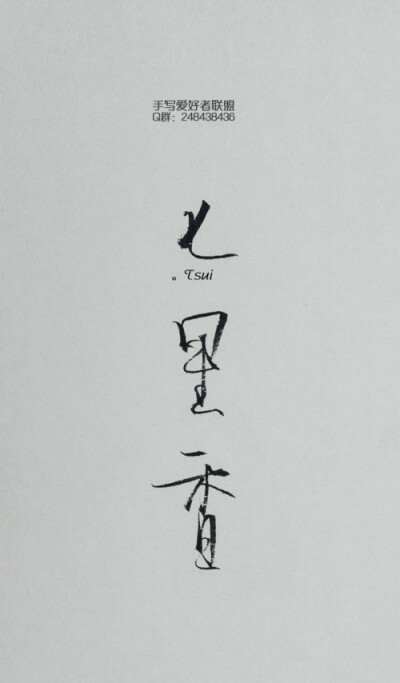 手写爱好者联盟
Q群：248438436
七
。Tsui
里
香